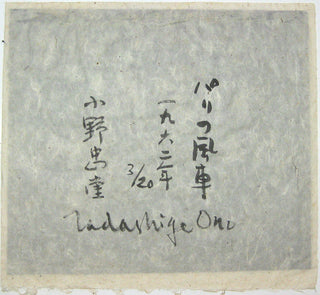 パリの風車
一九六二年
3/20
小野忠重
Tadashige Ono